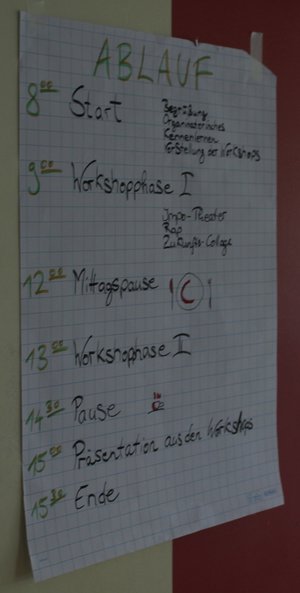 ABLAUF
8⁰⁰ Start
Begrüßung
Organisatorisches
Kennenlernen
Vorstellung der Workshops
9⁰⁰ Workshopphase I
Impro-Theater
Rap
Zukunfts-Collage
12⁰⁰ Mittagspause
13⁰⁰ Workshophase II
14³⁰ Pause
15⁰⁰ Präsentation aus den Workshops
15³⁰ Ende